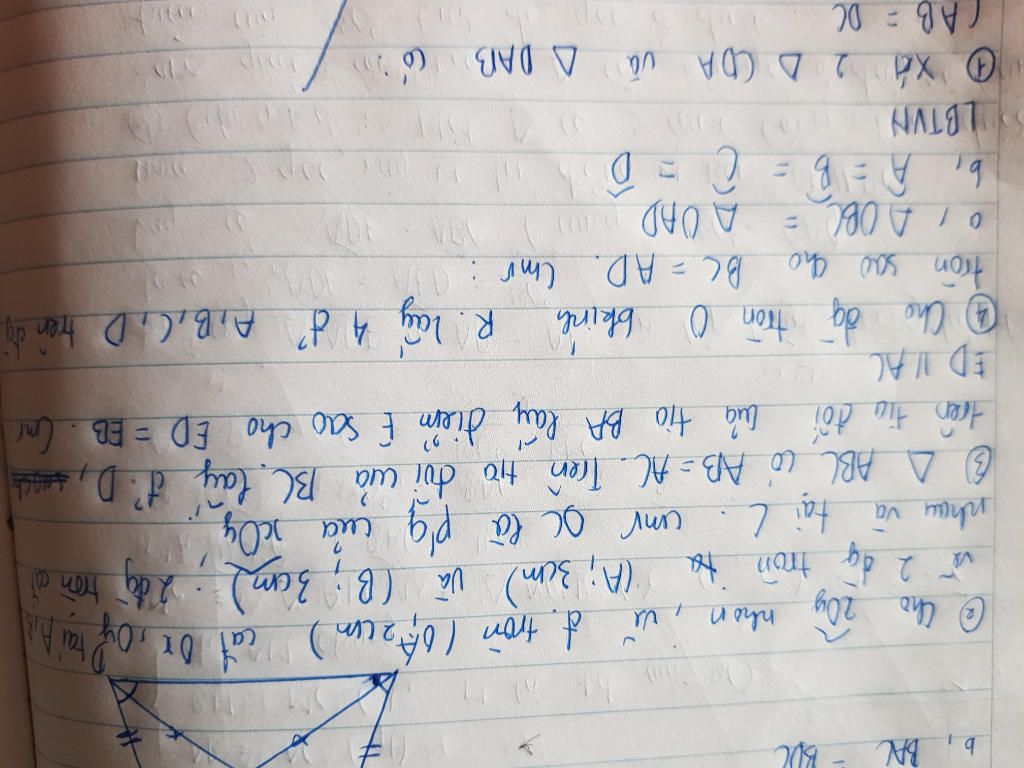 b, BAC = BDC
② Cho xOy nhọn, vẽ đ. tròn (O; 2cm) cắt Ox, Oy tại A, B
vẽ 2 đg tròn tâ (A; 3cm) và (B; 3cm); 2 đg tròn cắt
nhau và tại C. cmr OC là p'g của xOy
③ △ ABC có AB = AC. Trên tia đối của BC. lấy đ' D,
trên tia đối của tia BA lấy điểm E sao cho ED = EB. Cmr
ED // AC
④ Cho đg tròn O bkính R. lấy 4 đ' A, B, C, D trên đg
tròn sao cho BC = AD. Cmr :
a, △ OBC = △ OAD
b, Â = B̂ = Ĉ = D̂
LBTVN
① Xét 2 △ CDA và △ DAB có:
AB = DC